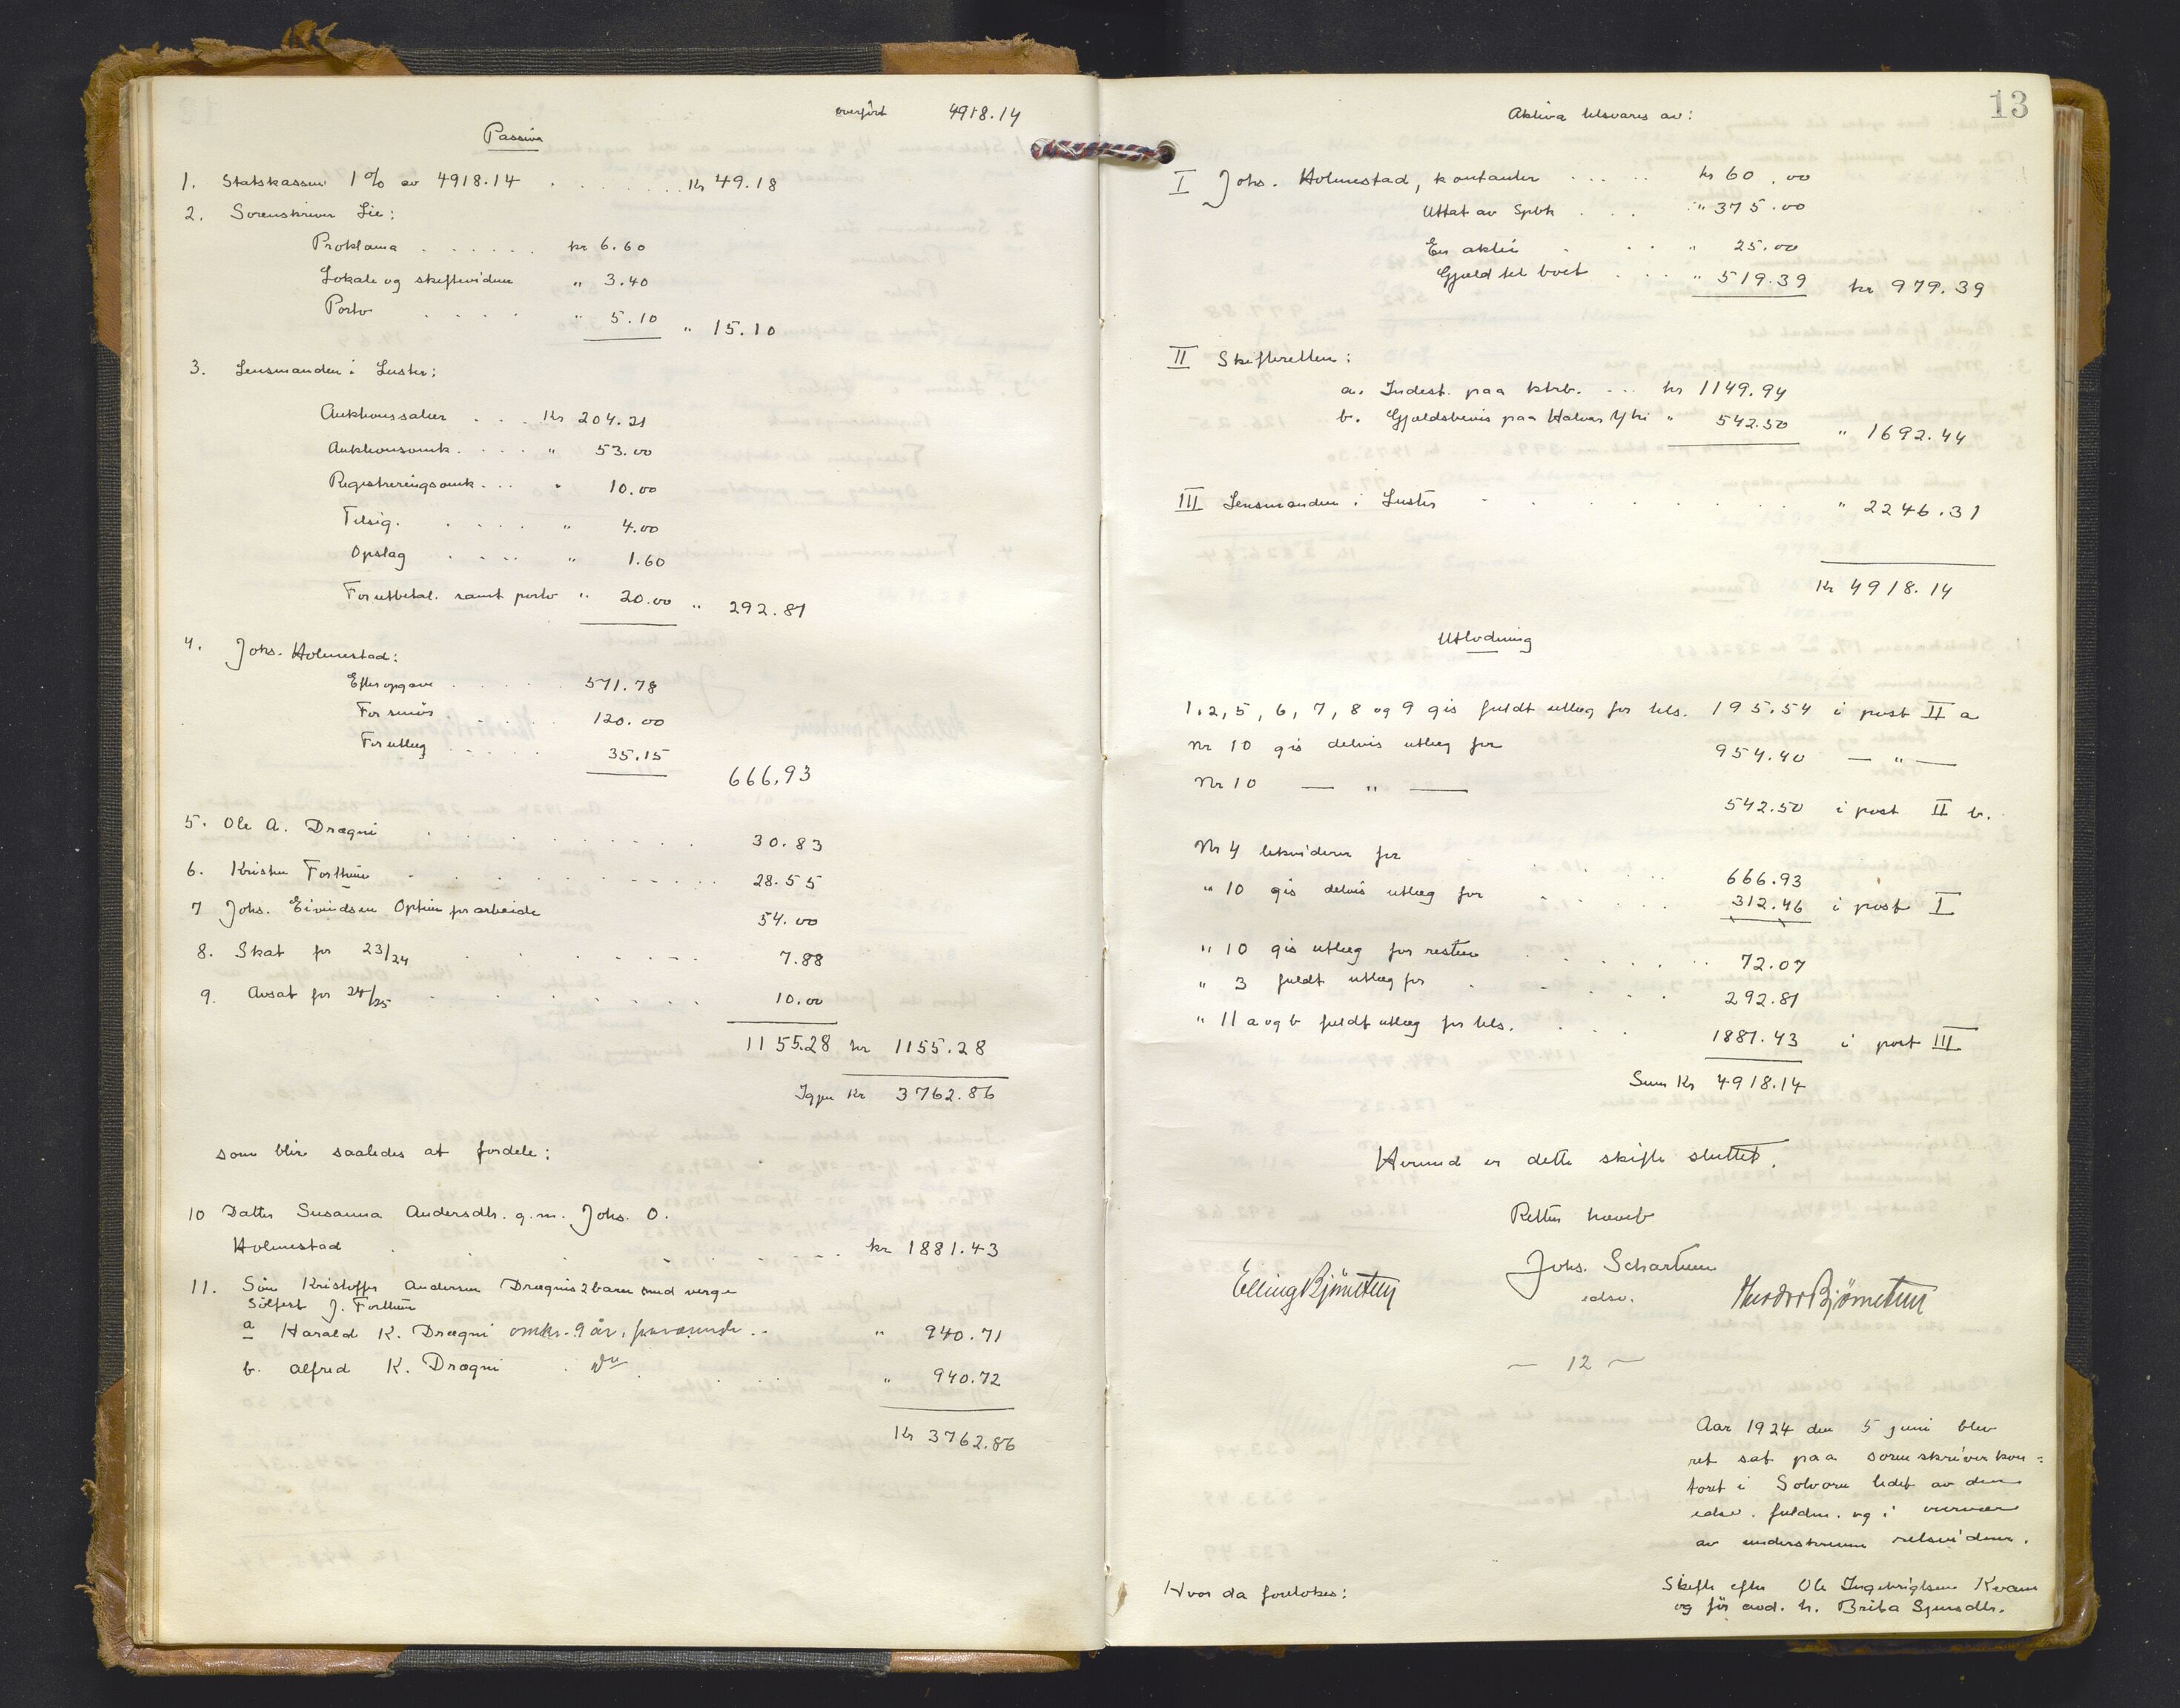 overført 4918.14
Passiva
1. Statskassen 1% av 4918.14 . . . . . . . . Kr 49.18
2. Sorenskriver Lie:
Proklama . . . . . . kr 6.60
Lokale og skiftevidner " 3.40
Porto . . . . " 5.10 " 15.10
3. Lensmanden i Luster:
Auktionssalær . . . Kr 204.21
Auktionsomk. . . . . " 53.00
Registreringsomk. . . . " 10.00
Tilsig. . . . . . " 4.00
Opslag . . . . " 1.60
Forutbetal. samt porto " 20.00 " 292.81
4. Johs. Holmestad:
Efter opgave . . . . . 511.78
For smör . . . . . 120.00
For utlæg . . . . . 35.15
666.93
5. Ole A. Drægni . . . . . . . . 30.83
6. Kristen Forthun . . . . . . . . . 28.55
7 Johs. Eivindsen Optun for arbeide 54.00
8. Skat for 23/24 . . . . . . 7.88
9. Avsat for 24/25 . . . . . . . . 10.00
1155.28 kr 1155.28
Igjen Kr 3762.86
som blir saaledes at fordele:
10 Datter Susanna Andersdtr. g.m. Johs. O.
Holmestad . . . . . . . . kr 1881.43
11. Sön Kristoffer Andersen Drægnis 2 barn med verge
Sölfest J. Forthun
a Harald K. Drægni omkr. 9 år, . . " 940.71
b. Alfred K. Drægni . Do . . . " 940.72
Kr 3762.86
13
Aktiva tilsvares av:
I Johs. Holmestad, kontanter . . . . . kr 60.00
Uttat av Spbk . . . . " 375.00
En aktie . . . " 25.00
Gjæld til boet . . . " 519.39 kr 979.39
II Skifteretten:
a. Indest. paa ktrb. . . . kr 1149.94
b. Gjældsbevis paa Halvar Ytri " 542.50 " 1692.44
III Lensmanden i Luster . . . . . . . . " 2246.31
Kr 4918.14
Utlodning
1, 2, 5, 6, 7, 8 og 9 gis fuldt utlæg for tils. 195.54 i post II a
Nr 10 gis delvis utlæg for 954.40 — " —
Nr 10 — " — 542.50 i post II b.
Nr 4 likviderer for . . . . 666.93
" 10 gis delvis utlæg for . . . . . 312.46 i post I
" 10 gis utlæg for resten . . . . . . 72.07
" 3 fuldt utlæg for . . . . . . 292.81
" 11 a og b fuldt utlæg for tils. . . . . 1881.43 i post III
Sum Kr 4918.14
Hermed er dette skifte sluttet.
Retten hævet
Johs. Schartum
edsv.
Elling Bjørnetun Theodor Bjørnetun
— 12 —
Aar 1924 den 5 juni blev
ret sat paa sorenskriverkon=
toret i Solvorn ledet av den
edsv. fuldm. og i overvær
av underskrevne retsvidner.
Hvor da foretokes:
Skifte efter Ole Ingebrigtsen Kvam
og før avd. h. Brita Sjursdtr.